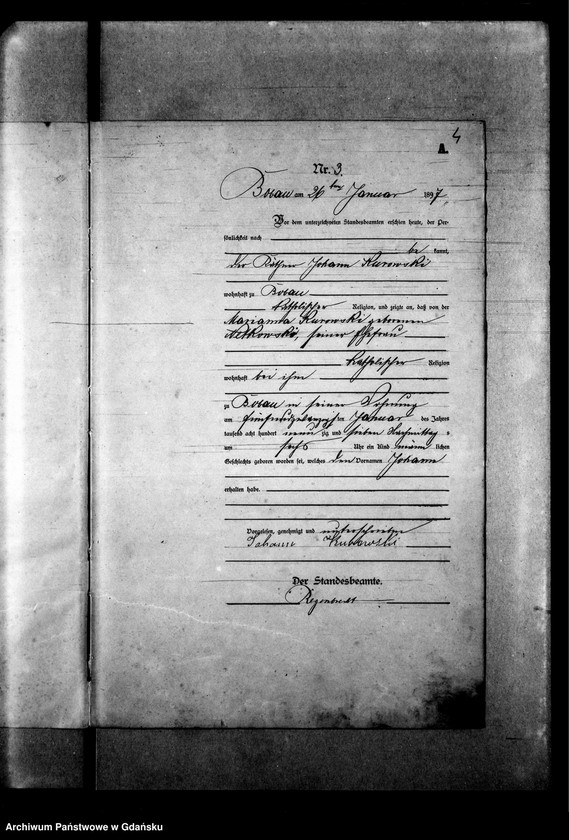 4
A.
Nr. 3.
Bobau am 26ten Januar 1897.
Vor dem unterzeichneten Standesbeamten erschien heute, der Per-
sönlichkeit nach
be kannt,
der Käthner Johann Kurowski
wohnhaft zu Bobau
katholischer Religion, und zeigte an, daß von der
Marianna Kurowski geborenen
seiner Ehefrau
katholischer Religion
wohnhaft bei ihm
zu Bobau in seiner Wohnung
am fünfundzwanzigsten Januar des Jahres
tausend acht hundert neunzig und sieben Nachmittags
um sechs Uhr ein Kind männlichen
Geschlechts geboren worden sei, welches den Vornamen Johann
erhalten habe.
Vorgelesen, genehmigt und unterschrieben
Johann Kurowski
Der Standesbeamte.
Archiwum Państwowe w Gdańsku